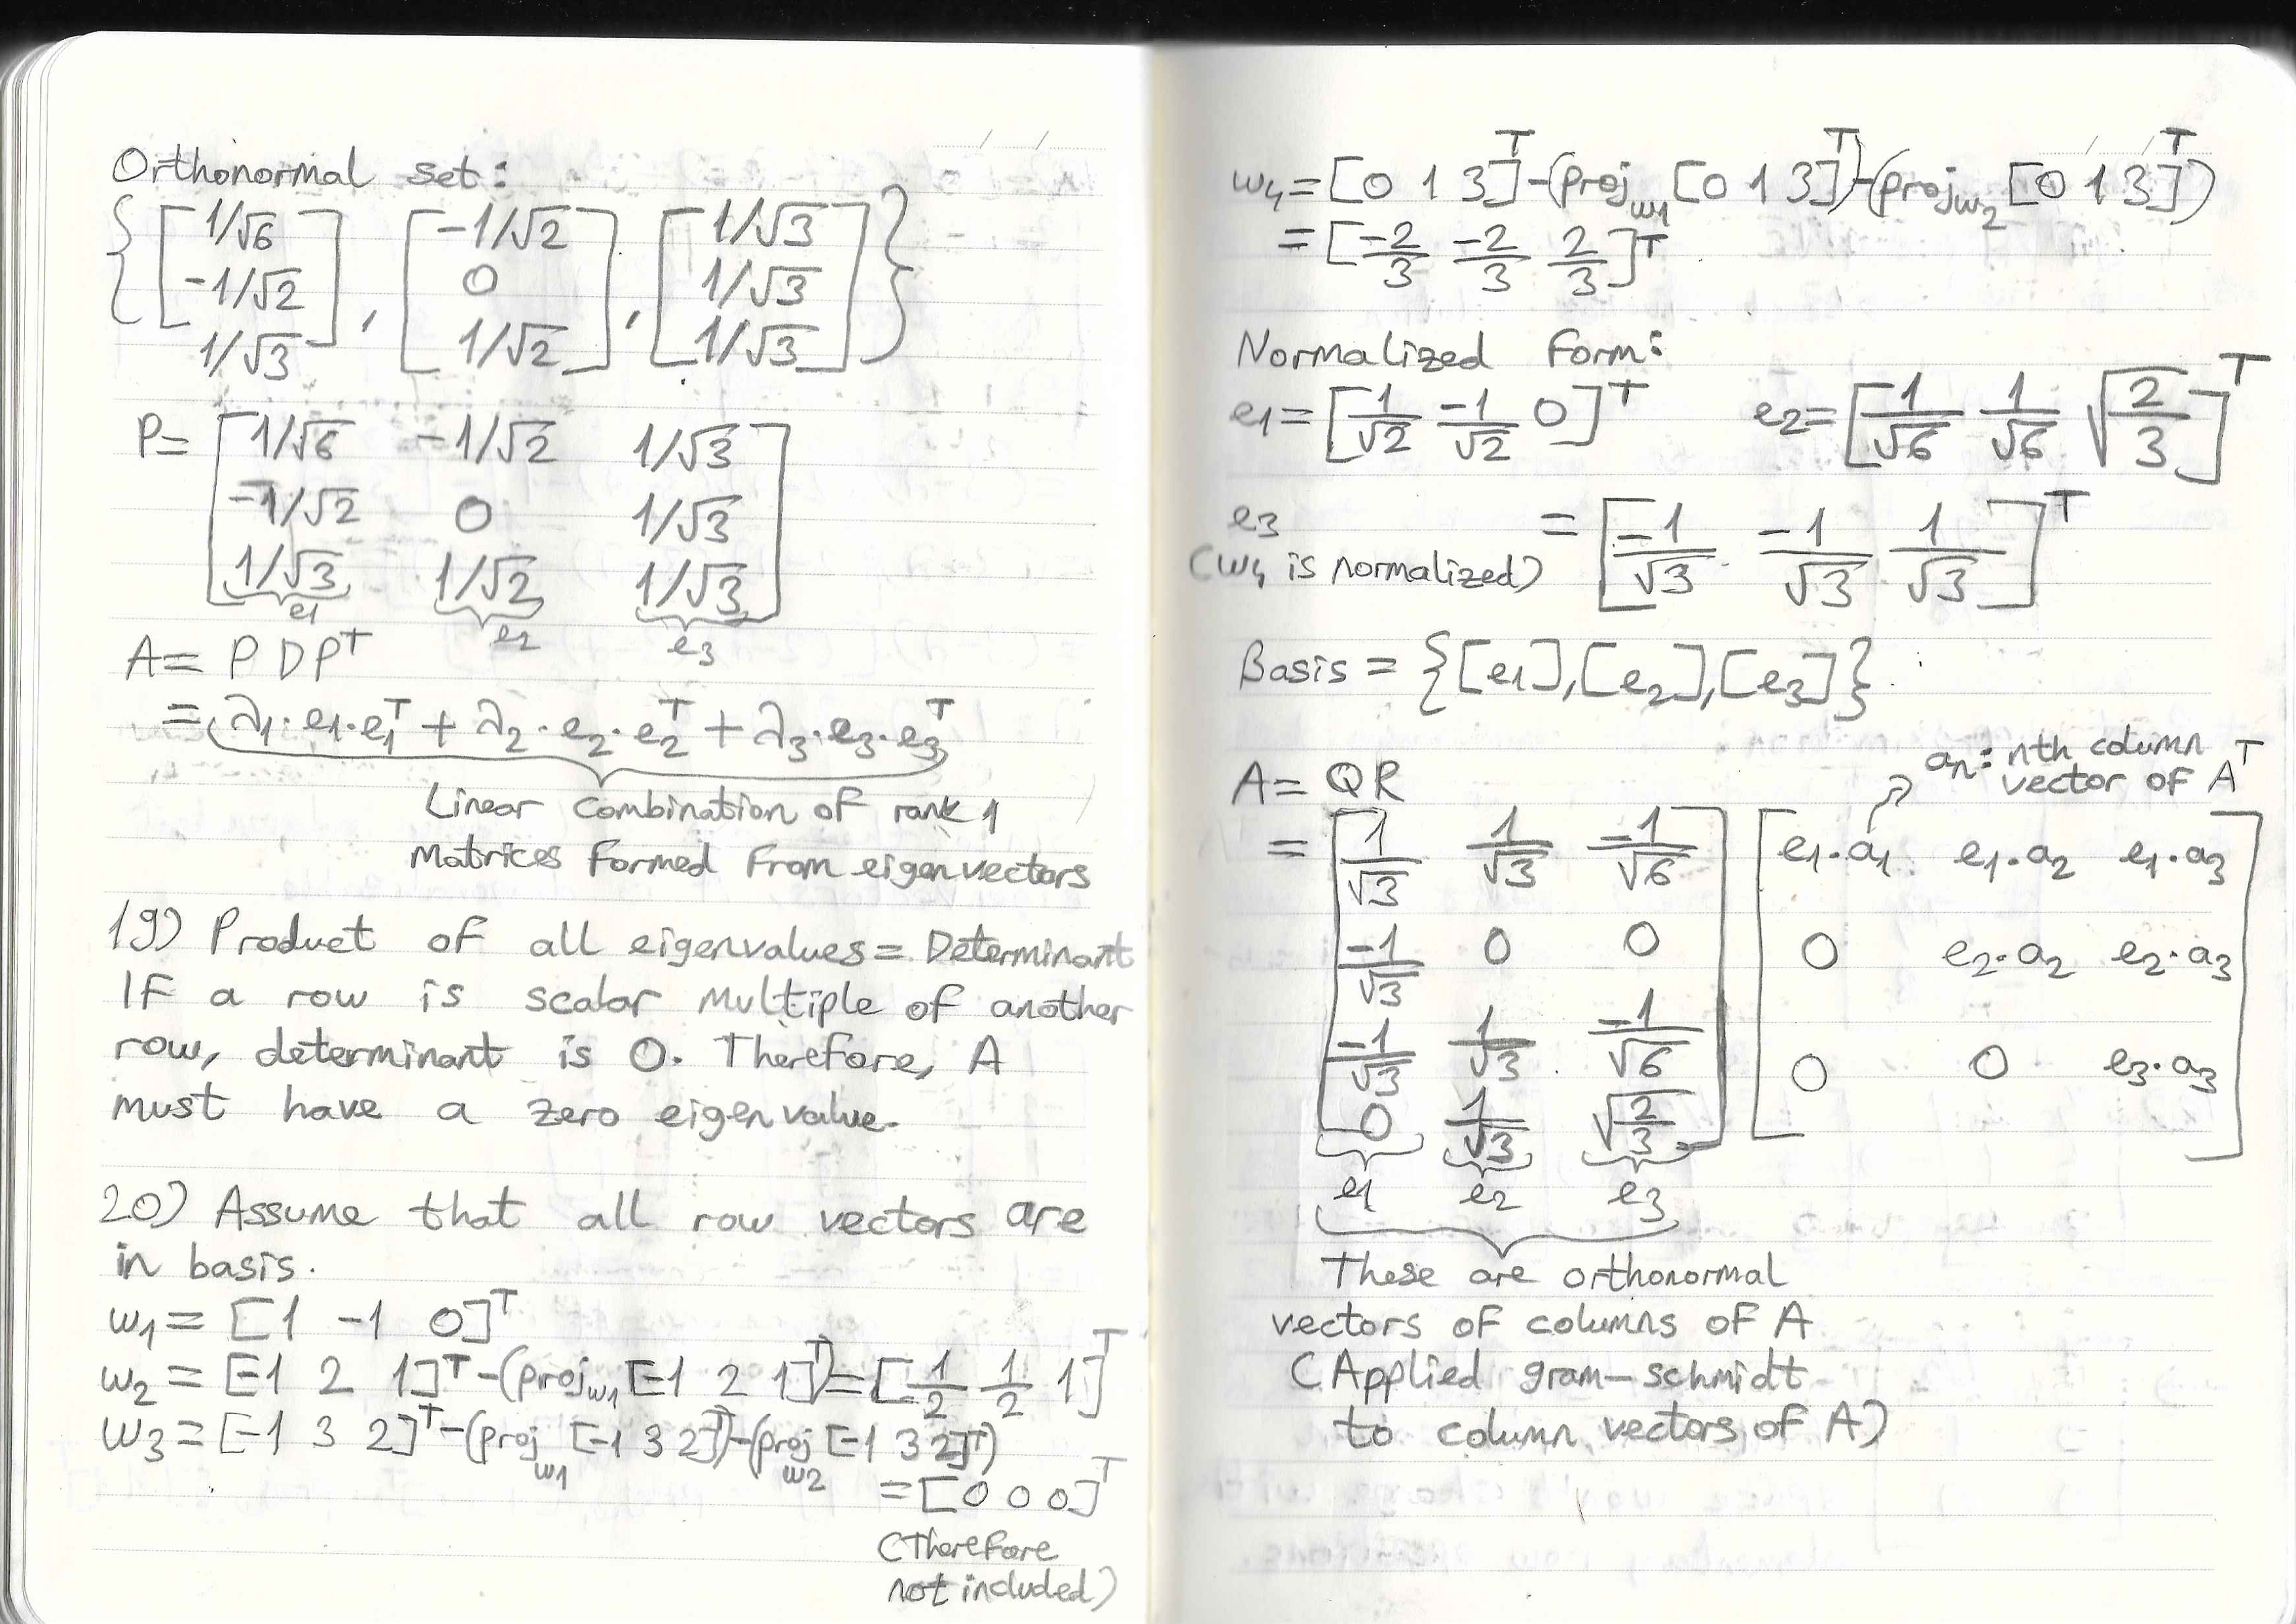 Orthonormal set:
{[1/√6 -1/√2 1/√3], [-1/√2 0 1/√2], [1/√3 1/√3 1/√3]}
P= [1/√6 -1/√2 1/√3
-1/√2 0 1/√3
1/√3 1/√2 1/√3]
e1 e2 e3
A= P D P^T
= λ1·e1·e1^T + λ2·e2·e2^T + λ3·e3·e3^T
Linear combination of rank 1
Matrices formed from eigenvectors
19) Product of all eigenvalues = Determinant
If a row is scalar multiple of another
row, determinant is 0. Therefore, A
must have a zero eigenvalue.
20) Assume that all row vectors are
in basis.
w1 = [1 -1 0]^T
w2 = [-1 2 1]^T-(proj_w1 [-1 2 1]^T)=[1/2 1/2 1]^T
w3 = [-1 3 2]^T-(proj_w1 [-1 3 2]^T)-(proj_w2 [-1 3 2]^T)
= [0 0 0]^T
(Therefore
not included)
w4 = [0 1 3]^T-(proj_w1 [0 1 3]^T)-(proj_w2 [0 1 3]^T)
= [-2/3 -2/3 2/3]^T
Normalized form:
e1= [1/√2 -1/√2 0]^T e2= [1/√6 1/√6 √(2/3)]^T
e3 = [-1/√3 -1/√3 1/√3]^T
(w4 is normalized)
Basis = {[e1],[e2],[e3]}
an: nth column
vector of A^T
A= QR
= [1/√3 1/√3 -1/√6 [e1·a1 e1·a2 e1·a3
-1/√3 0 0 0 e2·a2 e2·a3
-1/√3 1/√3 -1/√6 0 0 e3·a3]
0 1/√3 √(2/3)]
e1 e2 e3
These are orthonormal
vectors of columns of A
(Applied gram-schmidt
to column vectors of A)